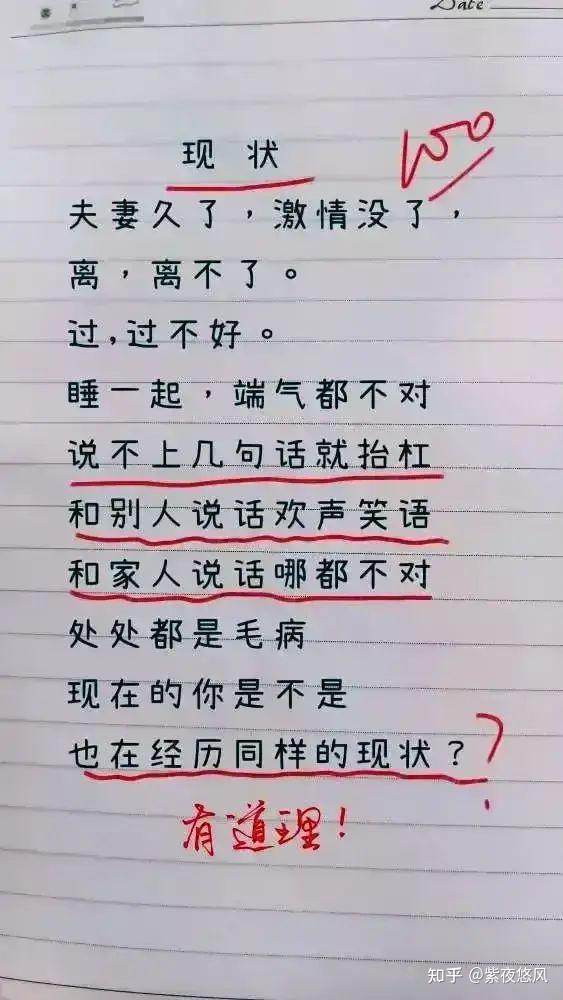 Date
现状
100
夫妻久了，激情没了，
离，离不了。
过，过不好。
睡一起，端气都不对
说不上几句话就抬杠
和别人说话欢声笑语
和家人说话哪都不对
处处都是毛病
现在的你是不是
也在经历同样的现状？
?
有道理！
知乎 @紫夜悠风